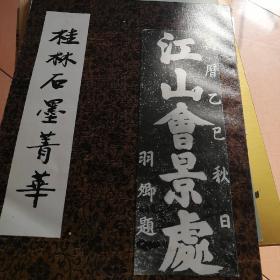 桂林石墨菁華
江山會景處
曆乙巳秋日
羽卿題